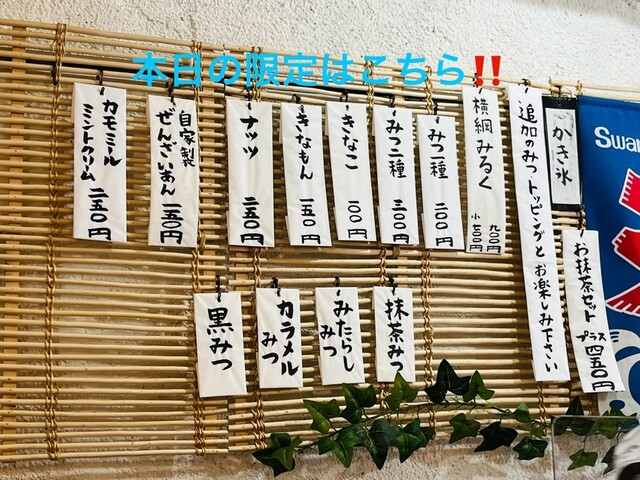 本日の限定はこちら‼️
かき氷
追加のみつトッピングとお楽しみ下さい
横綱みるく
九〇〇円
小七〇〇円
みつ一種 二〇〇円
みつ二種 三〇〇円
きなこ 一〇〇円
きなもん 一五〇円
ナッツ 二五〇円
自家製
ぜんざいあん 一五〇円
カモミール
ミントクリーム 二五〇円
お抹茶セット
プラス四五〇円
抹茶みつ
みたらし
みつ
カラメル
みつ
黒みつ
Swan